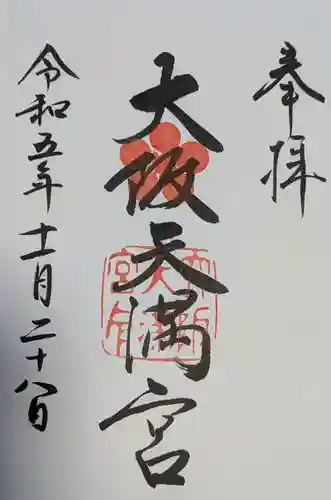 奉拝
大阪天満宮
令和五年十一月二十八日